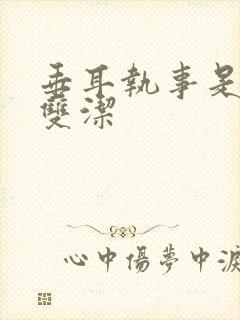 垂耳執事是
雙潔
心中傷夢中淚